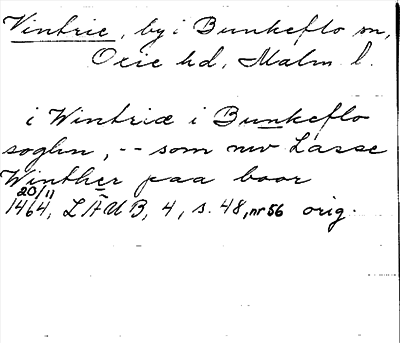 Vintrie, by i Bunkeflo sn,
Oxie hd, Malm. l.
i Wintriæ i Bunkeflo
soghn, -- som nw Lasse
Winther paa boor
20/11
1464, LÄUB, 4, s. 48, nr 56 orig.